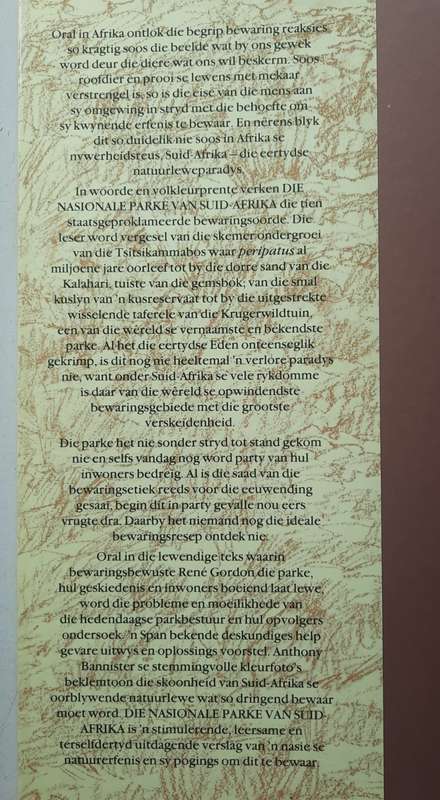 Oral in Afrika ontlok die begrip bewaring reaksies
so kragtig soos die beelde wat by ons gewek
word deur die diere wat ons wil beskerm. Soos
roofdier en prooi se lewens met mekaar
verstrengel is, so is die eise van die mens aan
sy omgewing in stryd met die behoefte om
sy kwynende erfenis te bewaar. En nêrens blyk
dit so duidelik nie soos in Afrika se
nywerheidsreus, Suid-Afrika – die eertydse
natuurleweparadys.
In woorde en volkleurprente verken DIE
NASIONALE PARKE VAN SUID-AFRIKA die tien
staatsgeproklameerde bewaringsoorde. Die
leser word vergesel van die skemer ondergroei
van die Tsitsikammabos waar peripatus al
miljoene jare oorleef tot by die dorre sand van die
Kalahari, tuiste van die gemsbok; van die smal
kuslyn van 'n kusreservaat tot by die uitgestrekte
wisselende taferele van die Krugerwildtuin,
een van die wêreld se vernaamste en bekendste
parke. Al het die eertydse Eden onteenseglik
gekrimp, is dit nog nie heeltemal 'n verlore paradys
nie, want onder Suid-Afrika se vele rykdomme
is daar van die wêreld se opwindendste
bewaringsgebiede met die grootste
verskeidenheid.
Die parke het nie sonder stryd tot stand gekom
nie en selfs vandag nog word party van hul
inwoners bedreig. Al is die saad van die
bewaringsetiek reeds voor die eeuwending
gesaai, begin dit in party gevalle nou eers
vrugte dra. Daarby het niemand nog die ideale
bewaringsresep ontdek nie.
Oral in die lewendige teks waarin
bewaringsbewuste René Gordon die parke,
hul geskiedenis en inwoners boeiend laat lewe,
word die probleme en moeilikhede van
die hedendaagse parkbestuur en hul opvolgers
ondersoek. 'n Span bekende deskundiges help
gevare uitwys en oplossings voorstel. Anthony
Bannister se stemmingvolle kleurfoto's
beklemtoon die skoonheid van Suid-Afrika se
oorblywende natuurlewe wat so dringend bewaar
moet word. DIE NASIONALE PARKE VAN SUID-
AFRIKA is 'n stimulerende, leersame en
terselfdertyd uitdagende verslag van 'n nasie se
natuurerfenis en sy pogings om dit te bewaar.